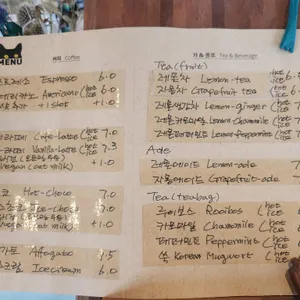 MENU
커피 Coffee
Espresso 6.0
아메리카노 Americano (hot ice 6.0
+ 1 shot +1.0
Cafe-Latte (hot ice 7.0
Vanilla-Latte (hot ice 7.3
Vegan (oat milk) +1.0
Hot-choco 7.0
ice-choco 7.0
(oat milk)
Affogato 7.5
Icecream 6.0
차 & 음료 Tea & Beverage
Tea (fruit)
레몬차 Lemon-tea (hot ice
자몽차 Grapefruit tea (hot ice
레몬생강차 Lemon-ginger (hot ice
레몬카모마일 Lemon-Chamomile (hot ice
레몬페퍼민트 Lemon-Peppermint (hot ice
Ade
레몬에이드 Lemon-ade
자몽에이드 Grapefruit-ade
Tea (teabag)
루이보스 Rooibos (hot ice
카모마일 Chamomile (hot ice
페퍼민트 Peppermint (hot ice
쑥 Korean Mugwort (hot ice